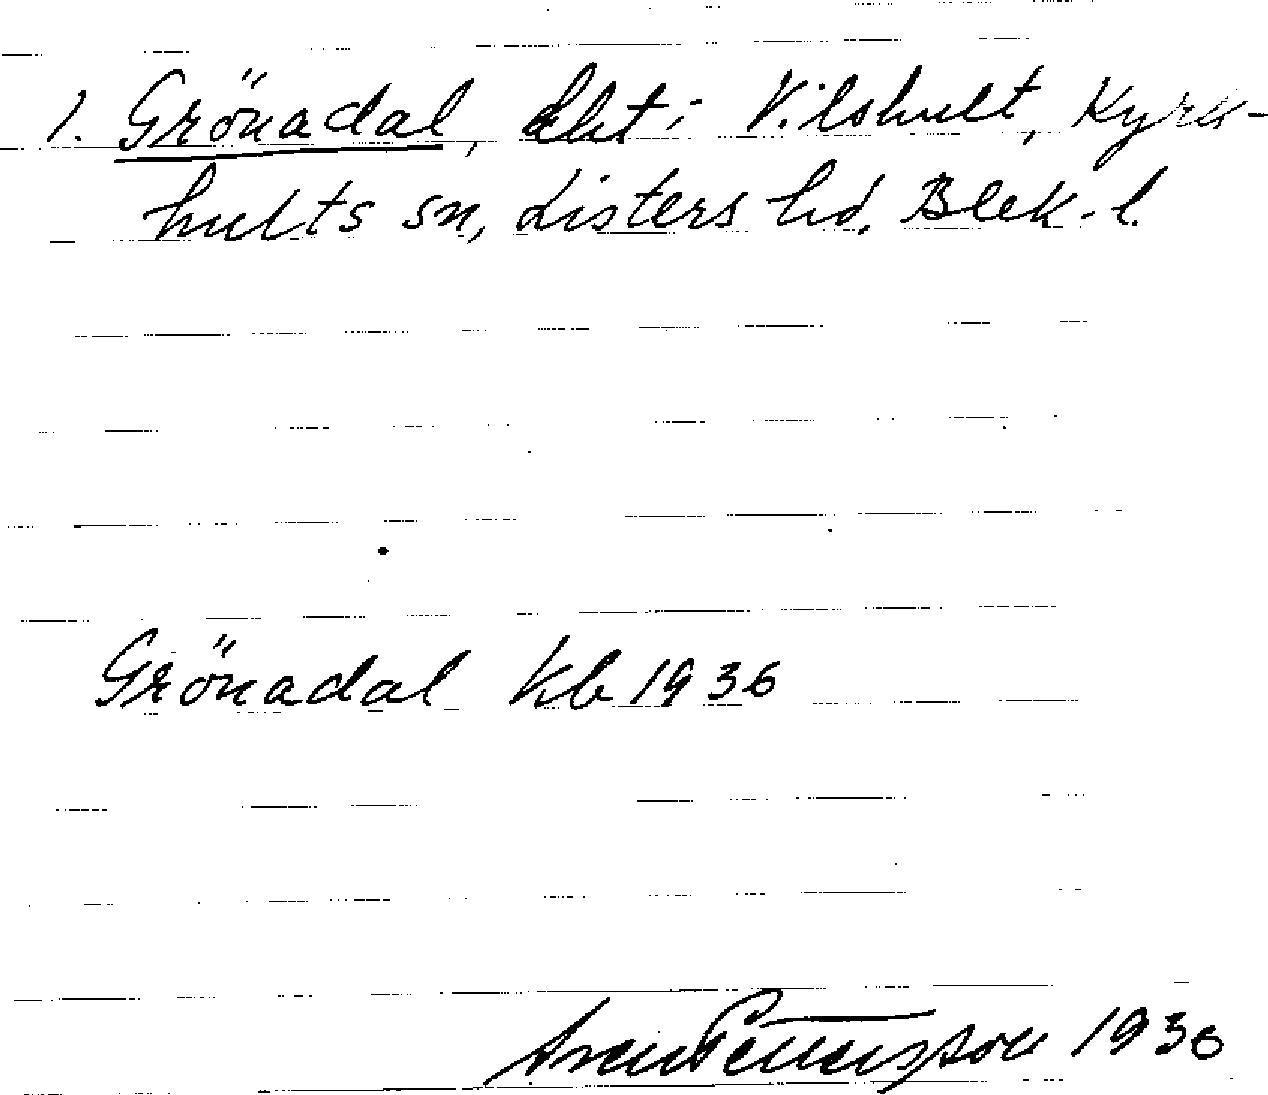 1. Grönadal, lht i Vilshult, Kyrk-
hults sn, Listers hd. Blek. l.
Grönadal Kb 1936
Sven Pettersson 1936